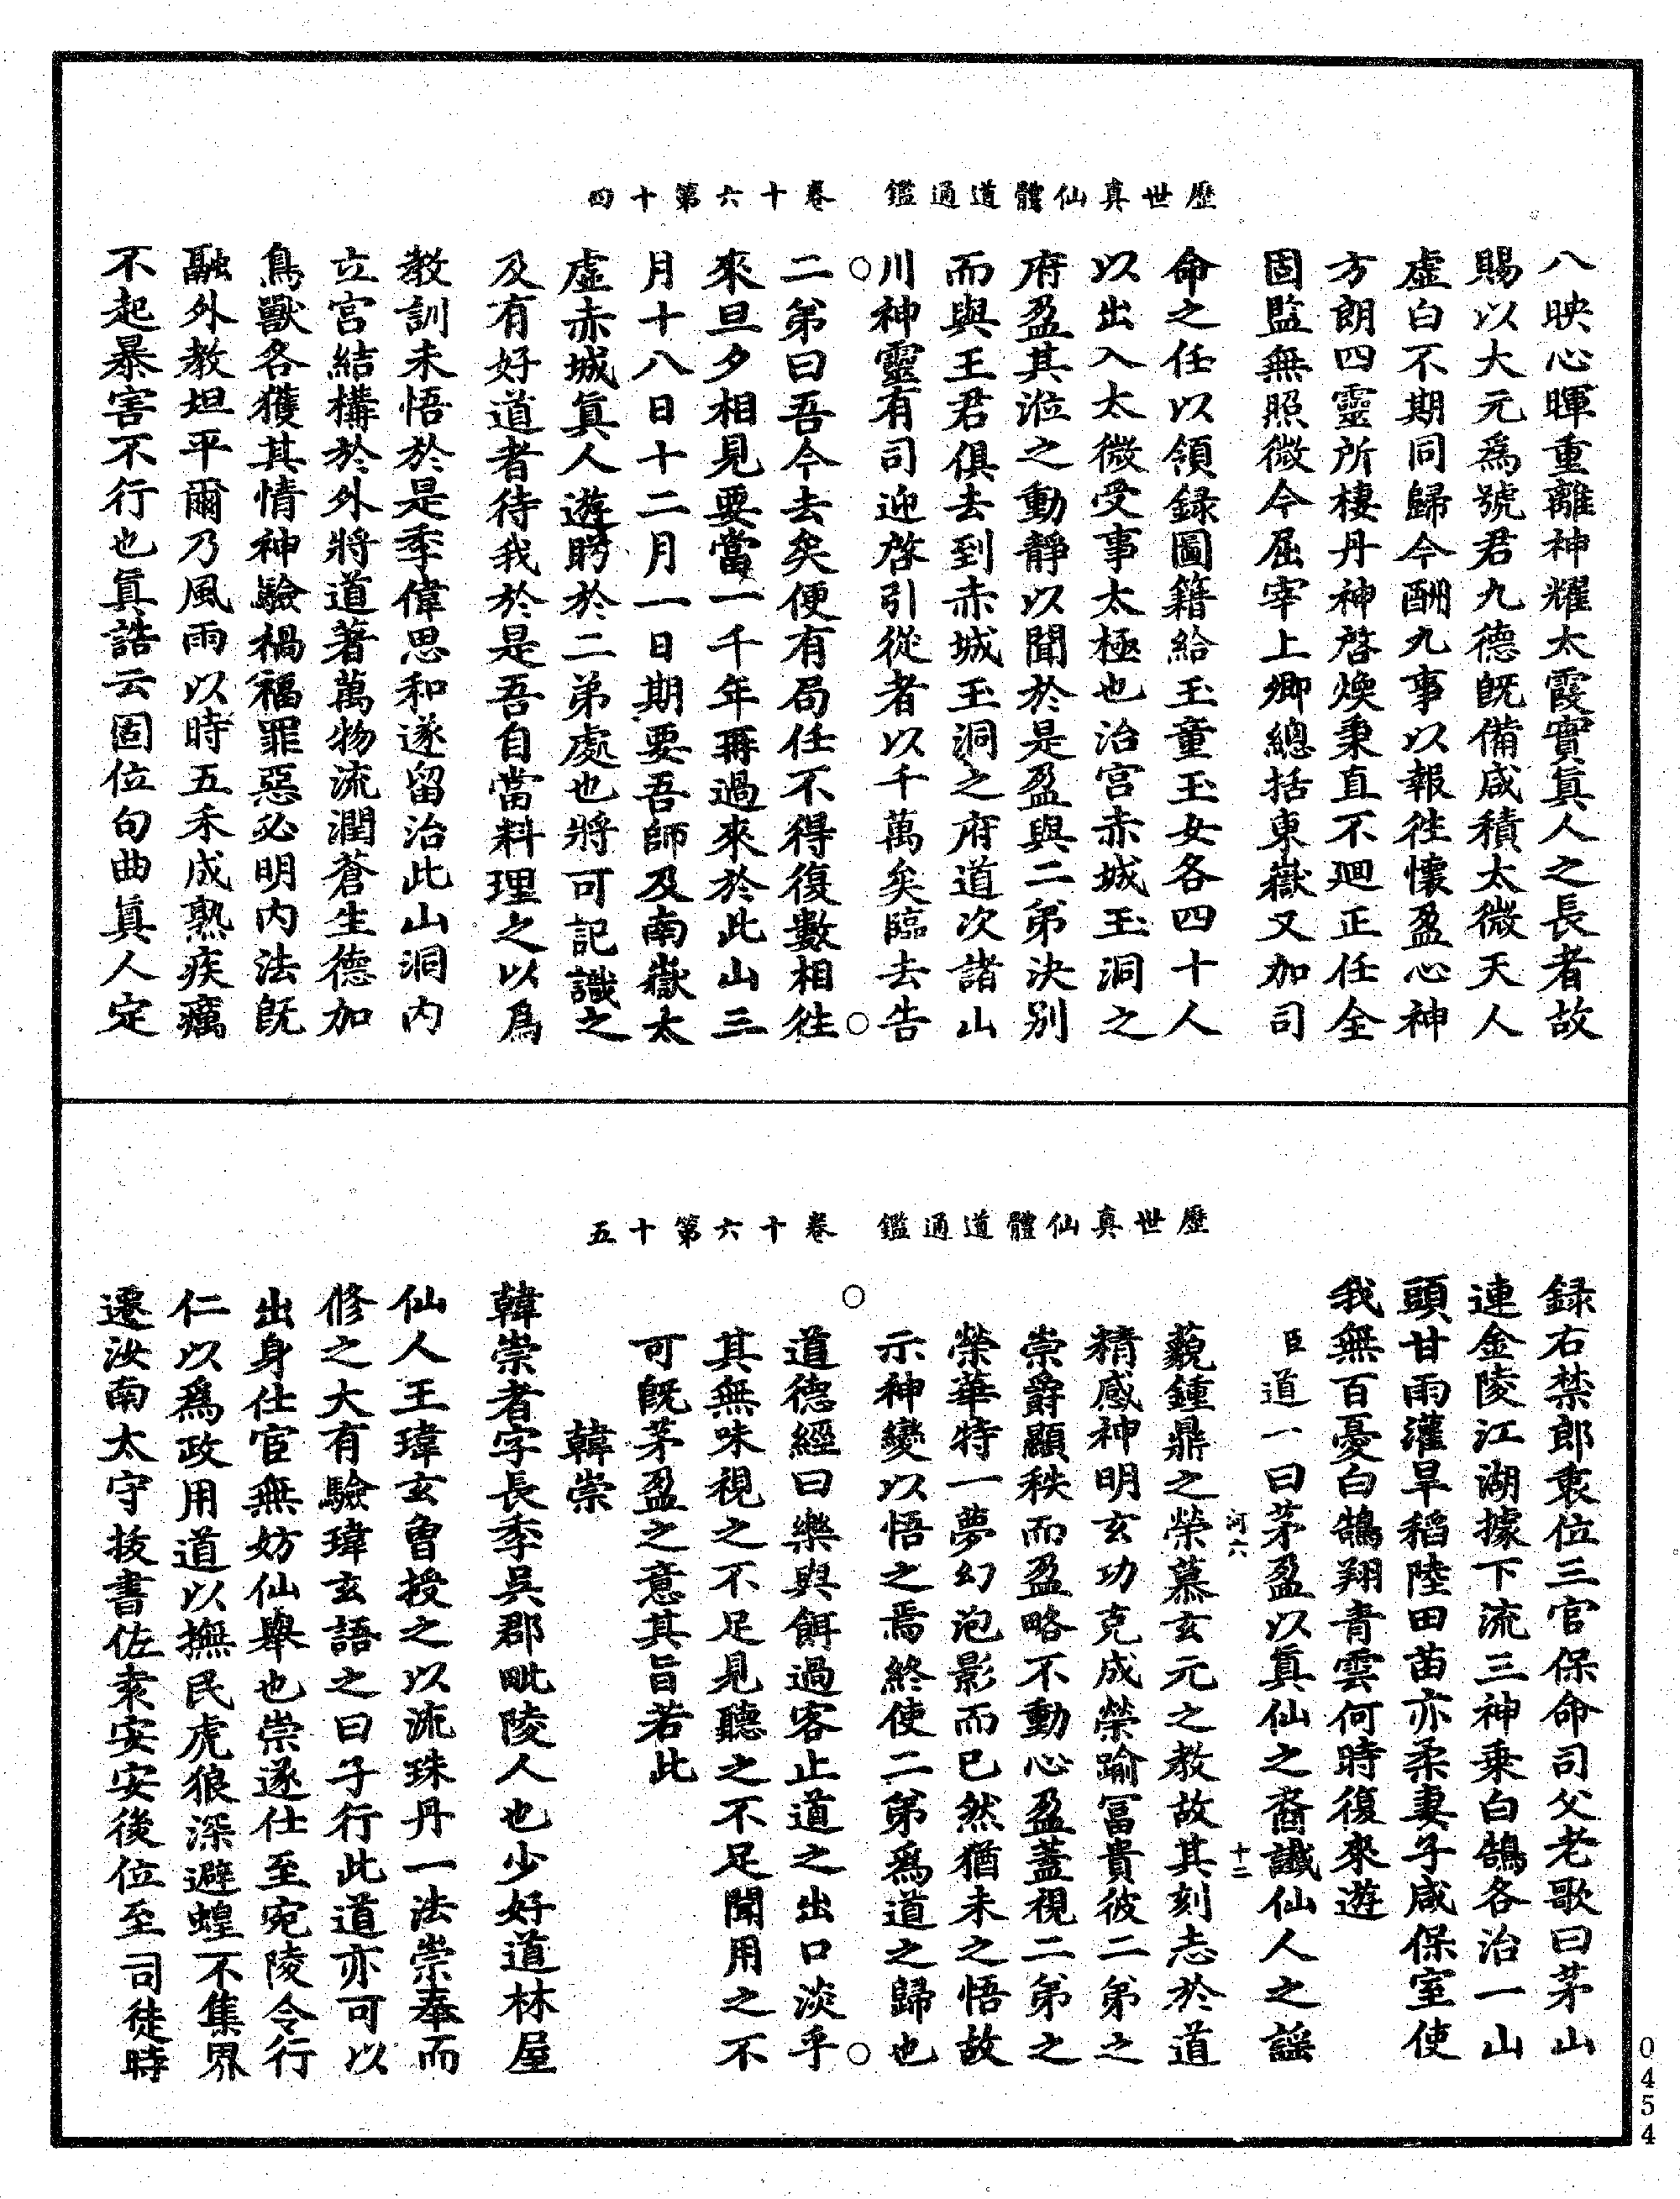 歷世真仙體道通鑑　卷十六第十四
八映心暉重離神耀太霞實眞人之長者故
賜以大元爲號君九德旣備咸積太微天人
虛白不期同歸今酬九事以報徃懷盈心神
方朗四靈所棲丹神啓煥秉直不廻正任全
固監無照微今屈宰上卿總括東嶽又加司
命之任以領錄圖籍給玉童玉女各四十人
以出入太微受事太極也治宫赤城玉洞之
府盈其涖之動靜以聞於是盈與二弟決別
而與王君俱去到赤城玉洞之府道次諸山
川神靈有司迎啓引從者以千萬矣臨去告
二弟曰吾今去矣便有局任不得復數相徃
來旦夕相見要當一千年再過來於此山三
月十八日十二月一日期要吾師及南嶽太
虛赤城眞人遊盻於二弟處也將可記識之
及有好道者待我於是吾自當料理之以爲
教訓未悟於是季偉思和遂留治此山洞内
立宫結構於外將道著萬物流潤蒼生德加
鳥獸各獲其情神驗禍福罪惡必明内法旣
融外教坦平爾乃風雨以時五禾成熟疾癘
不起暴害不行也眞誥云固位句曲眞人定
歷世真仙體道通鑑　卷十六第十五
録右禁郎衷位三官保命司父老歌曰茅山
連金陵江湖據下流三神乗白鵠各治一山
頭甘雨灌旱稻陸田苗亦柔妻子咸保室使
我無百憂白鵠翔青雲何時復來遊
臣道一曰茅盈以眞仙之裔讖仙人之謡
河六　十二
藐鍾鼎之榮慕玄元之教故其刻志於道
精感神明玄功克成榮踰冨貴彼二弟之
崇爵顯秩而盈略不動心盈蓋視二弟之
榮華特一夢幻泡影而已然猶未之悟故
示神變以悟之焉終使二弟爲道之歸也
道德經曰樂與餌過客止道之出口淡乎
其無味視之不足見聽之不足聞用之不
可旣茅盈之意其旨若此
韓崇
韓崇者字長季吳郡毗陵人也少好道林屋
仙人王瑋玄曾授之以流珠丹一法崇奉而
修之大有驗瑋玄語之曰子行此道亦可以
出身仕宦無妨仙舉也崇遂仕至宛陵令行
仁以爲政用道以撫民虎狼深避蝗不集界
遷汝南太守拔書佐袁安安後位至司徒時
0454